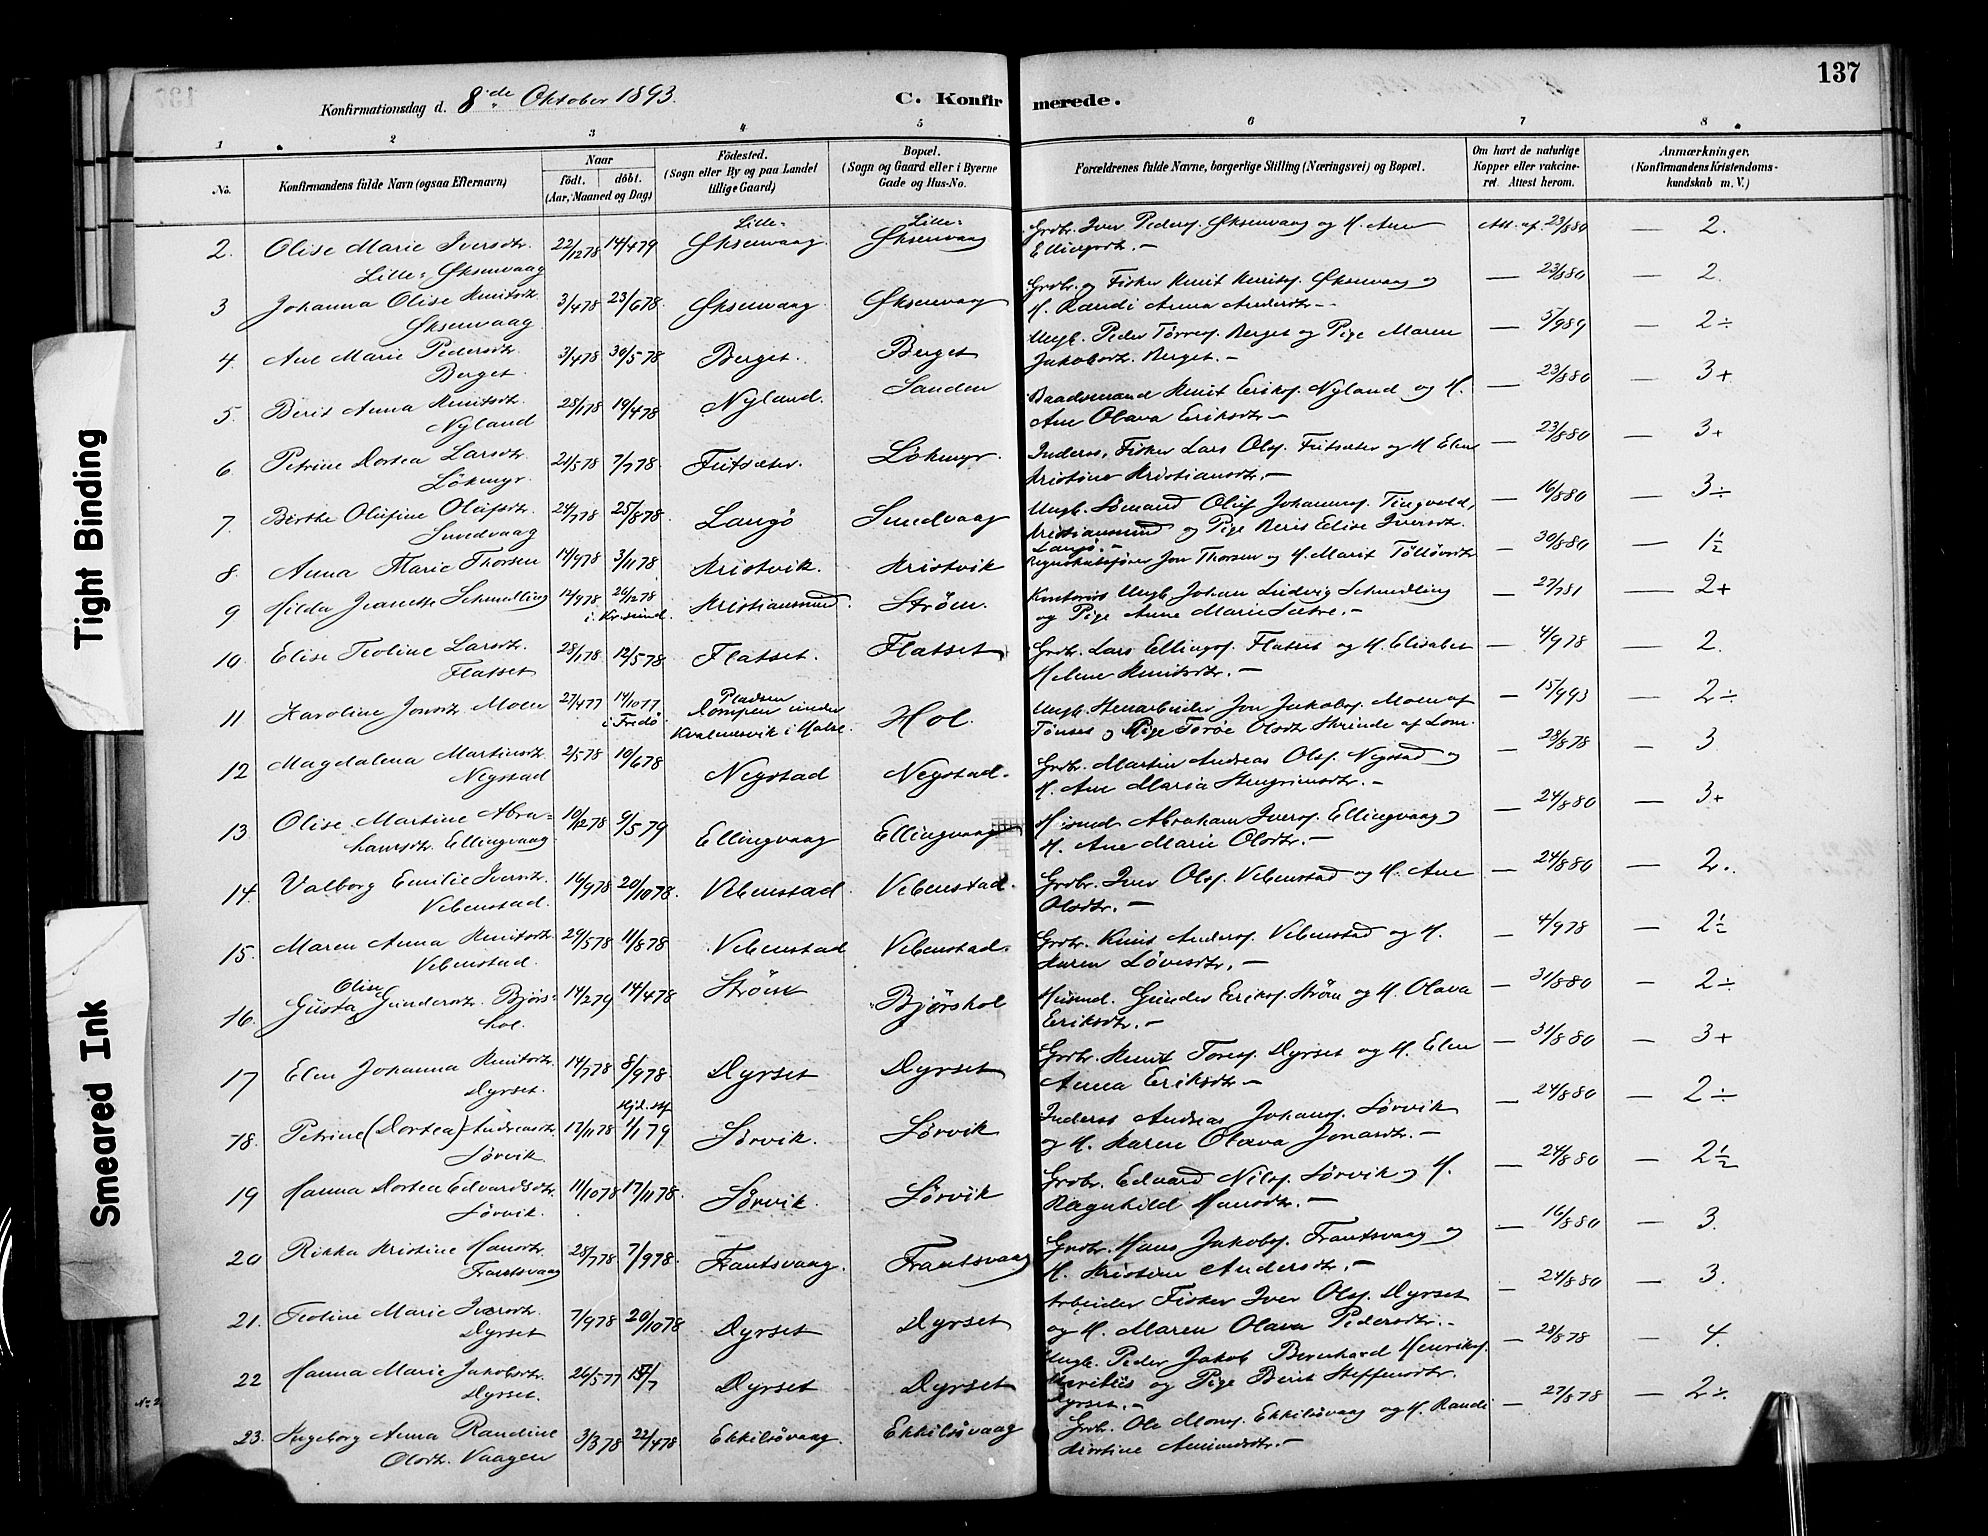 137
Konfirmationsdag d. 8de Oktober 1893.
C. Konfirmerede.
1 2 3 4 5 6 7 8
No.
Konfirmandens fulde Navn (ogsaa Efternavn)
Naar
födt. döbt.
(Aar, Maaned og Dag)
Födested.
(Sogn eller By og paa Landet tillige Gaard)
Bopæl.
(Sogn og Gaard eller i Byerne Gade og Hus-No.
Forældrenes fulde Navne, borgerlige Stilling (Næringsvei) og Bopæl.
Om havt de naturlige Kopper eller vakcineret. Attest herom.
Anmærkninger.
(Konfirmandens Kristendomskundskab m. V.)
2. Olise Marie Iversdtr. 22/12 78 14/4 79 Lille- Øksenvaag. Lille- Øksenvaag Grdbr. Iver Peders. Øksenvaag og H. Ane Att. af. 23/8 80 — 2.
Lille- Øksenvaag Ellingsdtr. —
3 Johanna Olise Knutsdtr. 3/4 78 23/6 78. Øksenvaag Øksenvaag Grdbr. og Fisker Knut Knuts. Øksenvaag og — 23/8 80 — 2.
Øksenvaag H. Randi Anna Andersdtr. —
4. Ane Marie Pedersdtr. 3/4 78 30/5 78 Berget. Berget Ungk. Peder Tørres. Berget og Pige Maren — 5/9 89 — 2÷
Berget. Jakobsdtr. Berget. —
5. Berit Anna Knutsdtr. 28/1 78 19/4 78 Nyland. Sanden Baadsmand Knut Eriks. Nyland og H. — 23/8 80 — 3+
Nyland Ane Olava Eriksdtr. —
6 Petrine Dortea Larsdtr. 21/5 78 7/7 78. Futsæter. Lökmyr. Inderst, Fisker Lars Ols. Futsæter og H. Elen — 23/8 80 — 3+
Lökmyr. Kristine Kristiansdtr. —
7. Berthe Olufine Olufsdtr. 24/7 78 25/8 78. Langö Sundvaag Ungk. Sömand Oluf Johannes. Tingvold, — 16/8 80 — 3÷
Sundvaag Kristiansund og Pige Beris Elise Iversdtr.
Langö. —
8. Anna Marie Thorsen 14/9 78 3/11 78 Kristvik. Kristvik Regnskabsfører Jon Thorsen og H. Marit — 30/8 80 — 1½
9 Hilda Jeanette Schmedling 12/9 78 26/12 78 Kristiansund. Ström. Kontorist Ungk. Johan Ludvig Schmedling — 27/7 81 — 2+
i Kr.sund. og Pige Anne Marie Sætre. —
10. Elise Teoline Larsdtr. 28/1 78 12/5 78. Flatset. Flatset Grdbr. Lars Ellings. Flatset og H. Elisabet — 4/9 78 — 2.
Flatset Helene Knutsdtr. —
11 Karoline Jonsdtr. Moen 27/4 77 14/10 77 Pladsen Hol. Ungk. Stenarbeider Jon Jakobs. Moen af — 15/9 93 — 2÷
i Fredö Dompen under Kvalnesvik i Halse Tönset og Pige Toröe Olsdtr. Skrinde af Lom.
12 Magdalena Martinsdtr. 2/5 78 10/6 78 Negstad Negstad. Grdbr. Martin Andreas Ols. Negstad og — 28/8 78 — 3
Negstad H. Ane Maria Stengrimsdtr. —
13. Olise Martine Abra- 10/12 78 9/5 79 Ellingvaag Ellingvaag Husmd. Abraham Ivers. Ellingvaag og — 24/8 80 — 3+
hamsdtr. Ellingvaag. H. Ane Marie Olsdtr. —
14. Valborg Emilie Iversdtr. 16/9 78 20/10 78. Vebenstad Vebenstad. Grdbr. Iver Ols. Vebenstad og H. Ane — 24/8 80 — 2.
Vebenstad. Olsdtr. —
15. Maren Anna Knutsdtr. 29/5 78 11/8 78 Vebenstad Vebenstad. Grdbr. Knut Anders. Vebenstad og H. — 4/9 78 — 2½
Vebenstad. Karen Lövesdtr. —
Oline
16. Gusta Gundersdtr. Bjørs- 14/2 79 14/4 78 Ström Bjørshol Husmd. Gunder Eriks. Ström og H. Olava — 31/8 80 — 2÷
hol. Eriksdtr. —
17 Elen Johanna Knutsdtr. 14/7 78 8/9 78. Dyrset Dyrset Grdbr. Knut Tores. Dyrset og H. Elen — 31/8 80 — 3+
Dyrset. Anna Eriksdtr —
18. Petrine (Dortea) Andreasdtr. 17/11 78 1/1 79 Sörvik. Sörvik Inderst Andreas Johans. Sörvik — 24/8 80 — 2÷
Sörvik. og H. Karen Olava Jonasdtr. —
19 Hanna Dortea Edvardsdtr. 11/10 78 17/11 78. Sörvik. Sörvik Grdbr. Edvard Nils. Sörvik og H. — 24/8 80 — 2½
Sörvik. Ragnhild Hansdtr. —
20 Rikka Kristine Hansdtr. 28/7 78 7/9 78. Frantsvaag. Frantsvaag Grdbr. Hans Jakobs. Frantsvaag og — 16/8 80 — 3.
Frantsvaag H. Kristine Andersdtr. —
21. Teoline Marie Iversdtr. 7/9 78 20/10 78 Dyrset Dyrset Arbeider Fisker Iver Ols. Dyrset — 24/8 80 — 3.
Dyrset og H. Maren Olava Pedersdtr. —
22 Hanna Marie Jakobsdtr. 26/5 77 Dyrset Dyrset Ungk. Peder Jakob Bernhard Henriks. — 28/8 78 — 4.
Dyrset. og Pige Berit Steffensdtr.
Dyrset. —
23. Ingeborg Anna Randine 3/3 78 22/4 78 Ekkilsövaag. Ekkilsövaag Grdbr. Ole Mons. Ekkilsövaag og H. Randi — 27/8 78 — 2÷
Olsdtr. Vaagen Kirstine Amundsdtr. —
Tight Binding
Smeared Ink